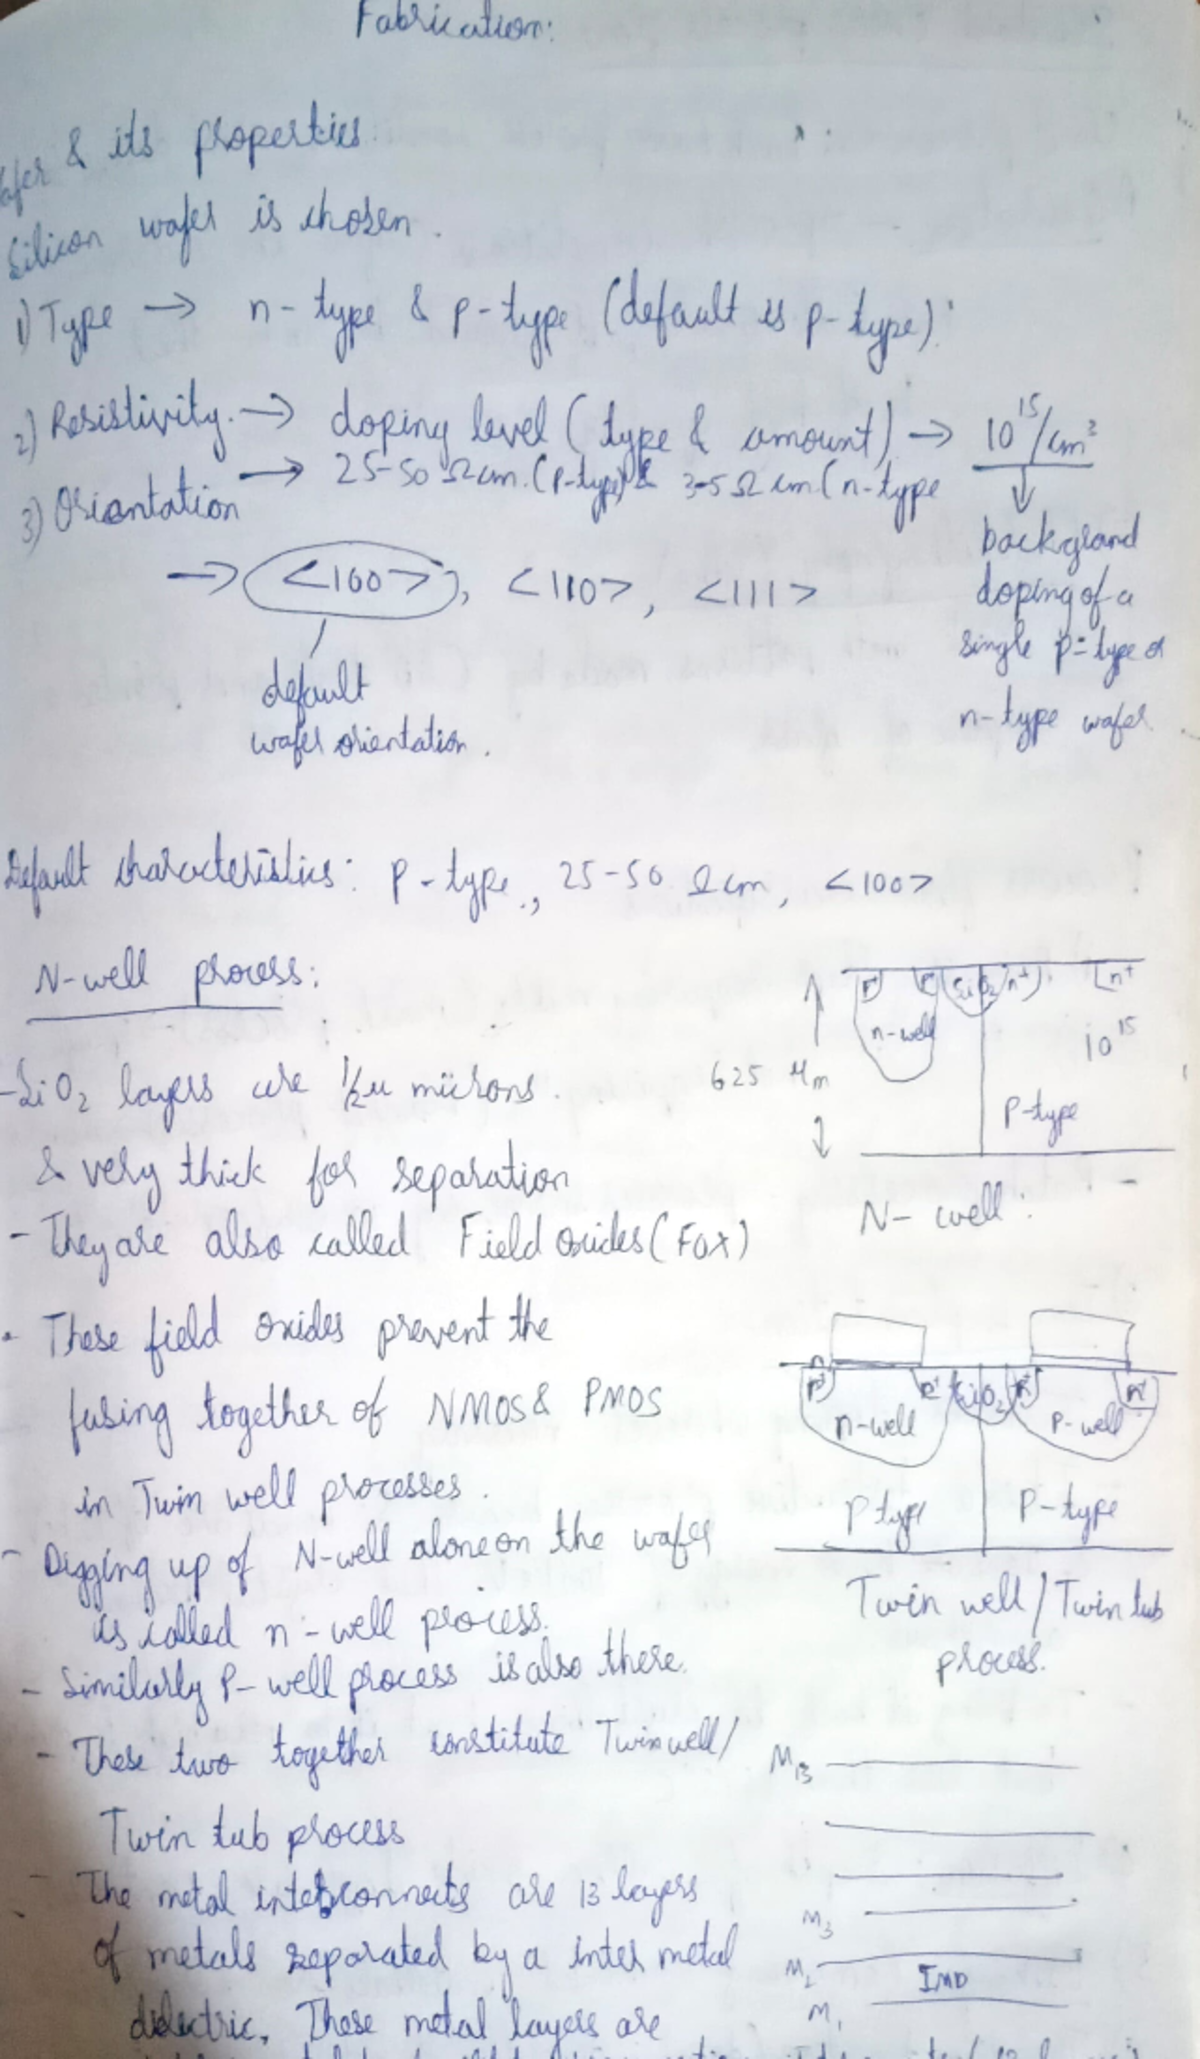 Fabrication:
& its properties
Silicon wafer is chosen.
1) Type → n-type & p-type (default is p-type).
2) Resistivity. → doping level (type & amount) → 10^15/cm³
→ 25-50 Ωcm. (P-type) & 3-5 Ω cm (n-type
3) Orientation
→ <100>, <110>, <111>
default
wafer orientation.
backgrland
doping of a
single p-type or
n-type wafer
Default characteristics: P-type., 25-50 Ωcm, <100>
N-well process:
- SiO2 layers are 1/2 μ microns.
& very thick for separation
- They are also called Field oxides (FOX)
625 μm
P+ P+ SiO2 n+ n+
n-well
10^15
P-type
N-well:
• These field oxides prevent the
fusing together of NMOS & PMOS
in Twin well processes.
- Digging up of N-well alone on the wafer
is called n-well process.
- Similarly P-well process is also there.
- These two together constitute Twin well/
Twin tub process
P+ P+ SiO2
n-well P-well
P type P-type
Twin well/Twin tub
process.
- The metal interconnects are 13 layers
of metals separated by a inter metal
dielectric. These metal layers are
M13
M3
M2
IMD
M1